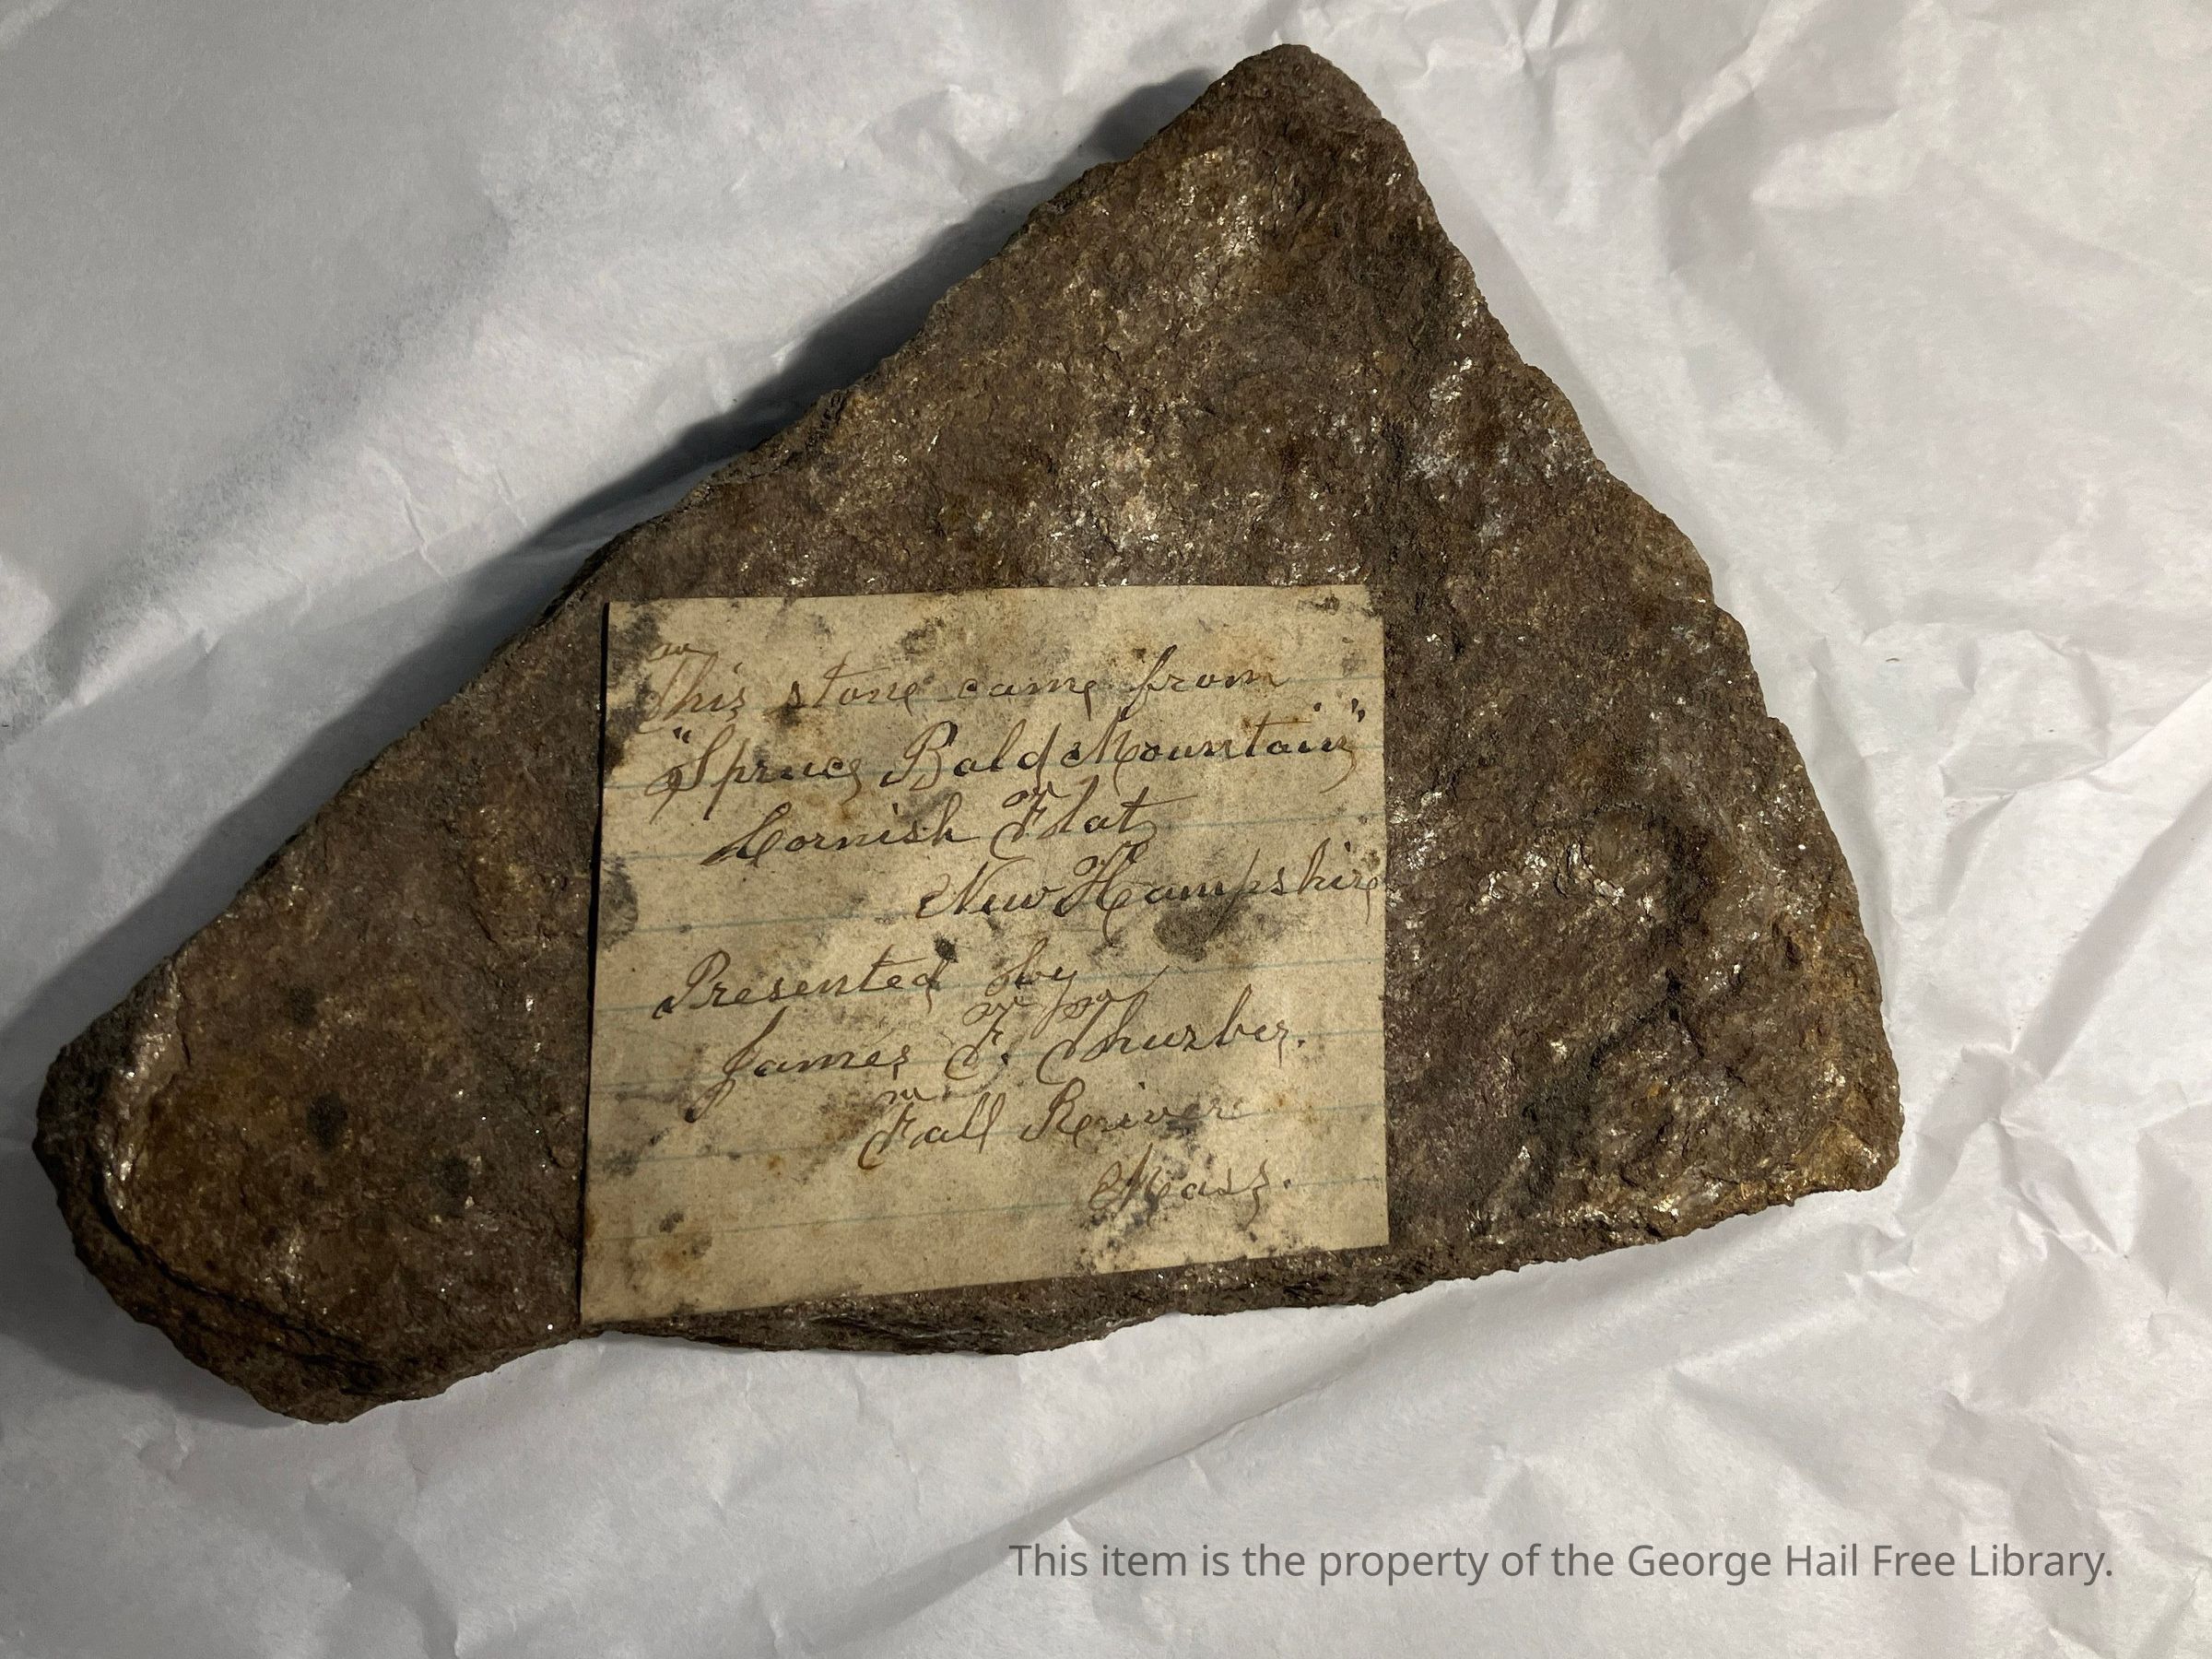 This stone came from
"Spruce Bald Mountain"
Cornish Flat
New Hampshire
Presented by
James F. Thurber.
Fall River
Mass.
This item is the property of the George Hail Free Library.